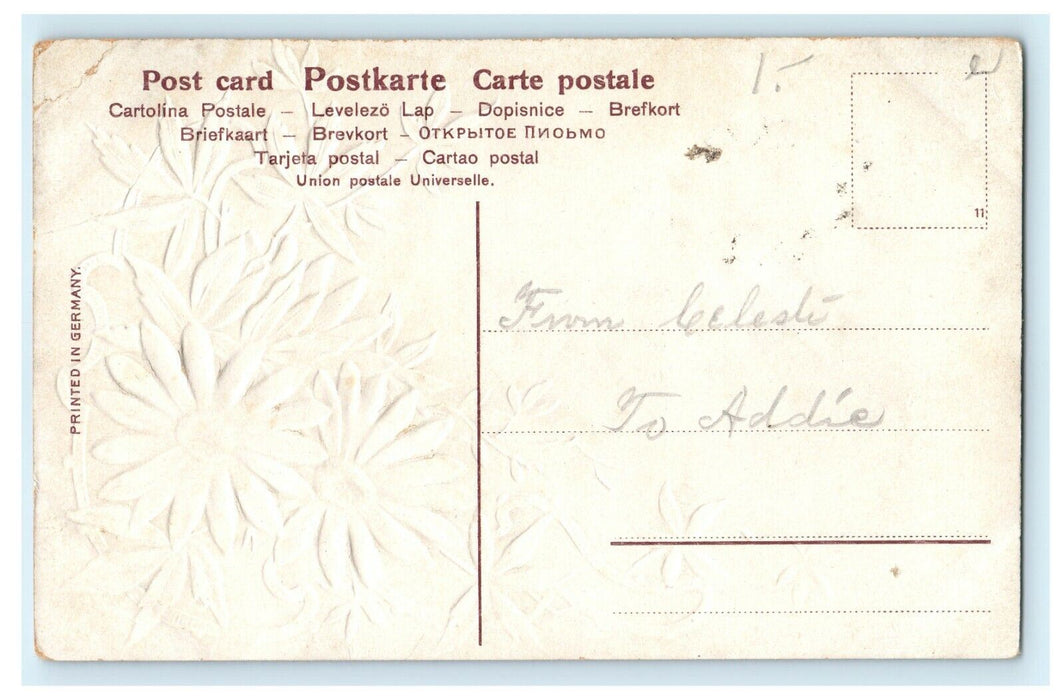 Post card Postkarte Carte postale
Cartolina Postale – Levelezö Lap – Dopisnice – Brefkort
Briefkaart – Brevkort – ОТКРЫТОЕ ПИОЬМО
Tarjeta postal – Cartao postal
Union postale Universelle.
1.-
11
PRINTED IN GERMANY.
From Celeste
To Addie